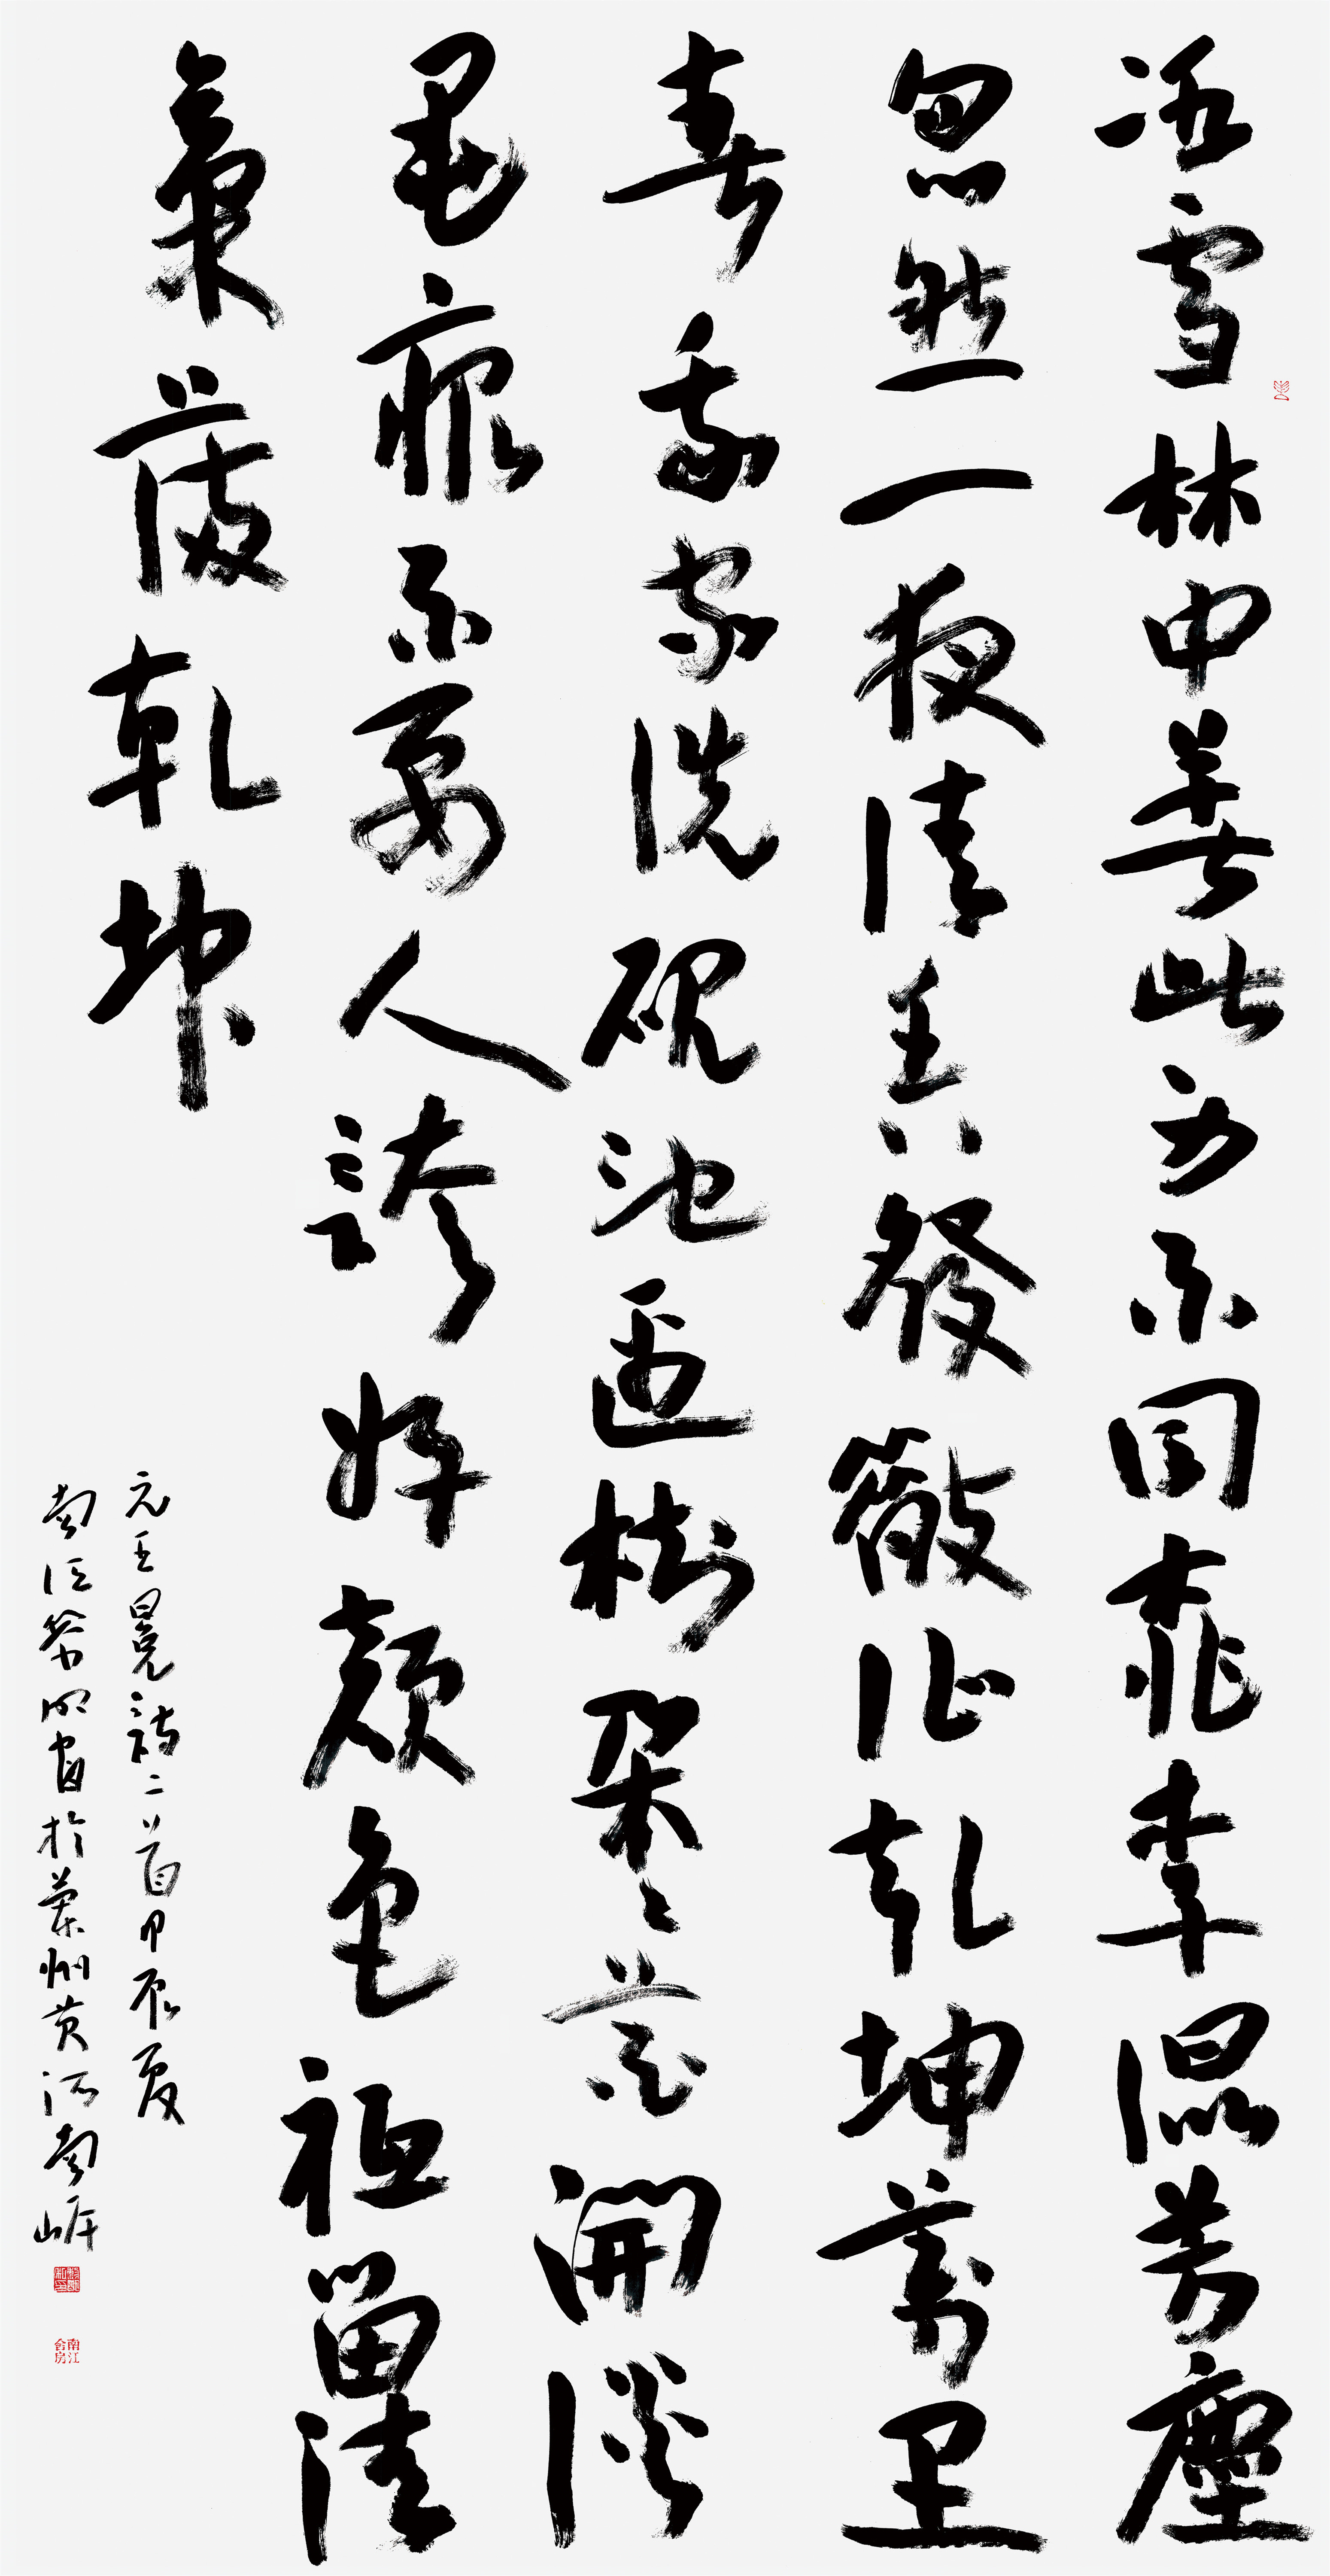 冰雪林中著此身不同桃李混芳塵
忽然一夜清香發散作乾坤萬里
春我家洗硯池邊樹朵朵花開淡
墨痕不要人誇好顏色祇留清
氣滿乾坤
元王冕詩二首甲辰夏
南江於蘭州黃河南岸